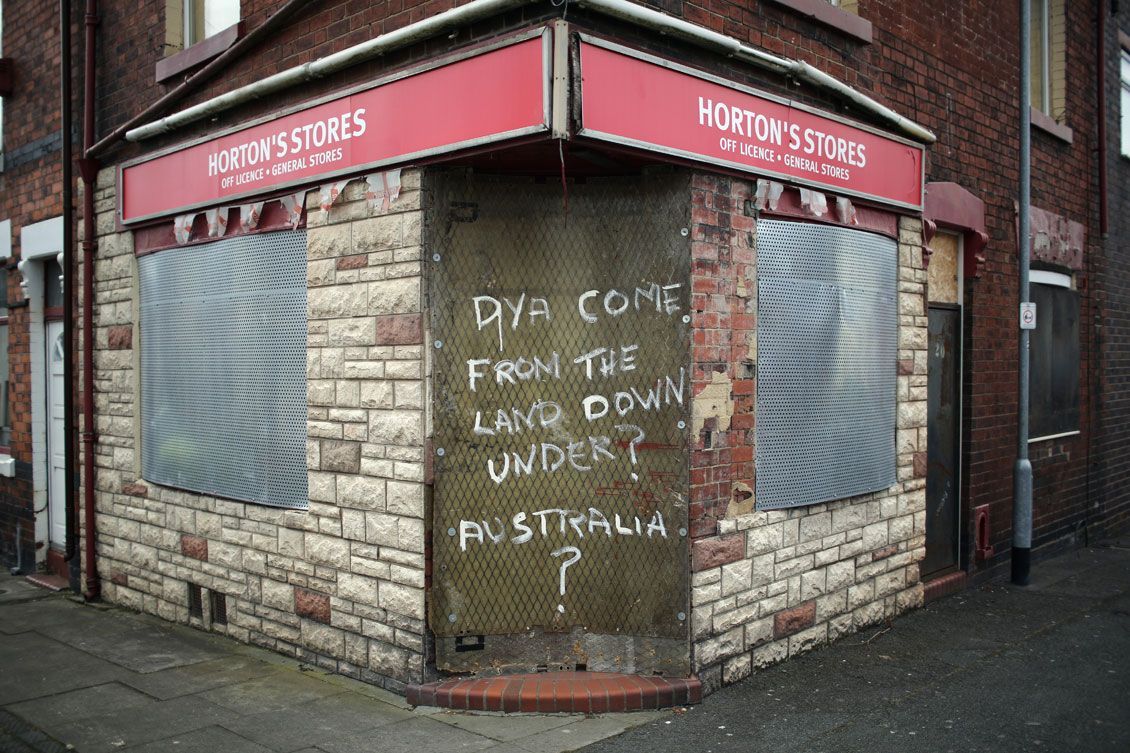 HORTON'S STORES
OFF LICENCE • GENERAL STORES
HORTON'S STORES
OFF LICENCE • GENERAL STORES
DYA COME
FROM THE
LAND DOWN
UNDER?
AUSTRALIA
?
26